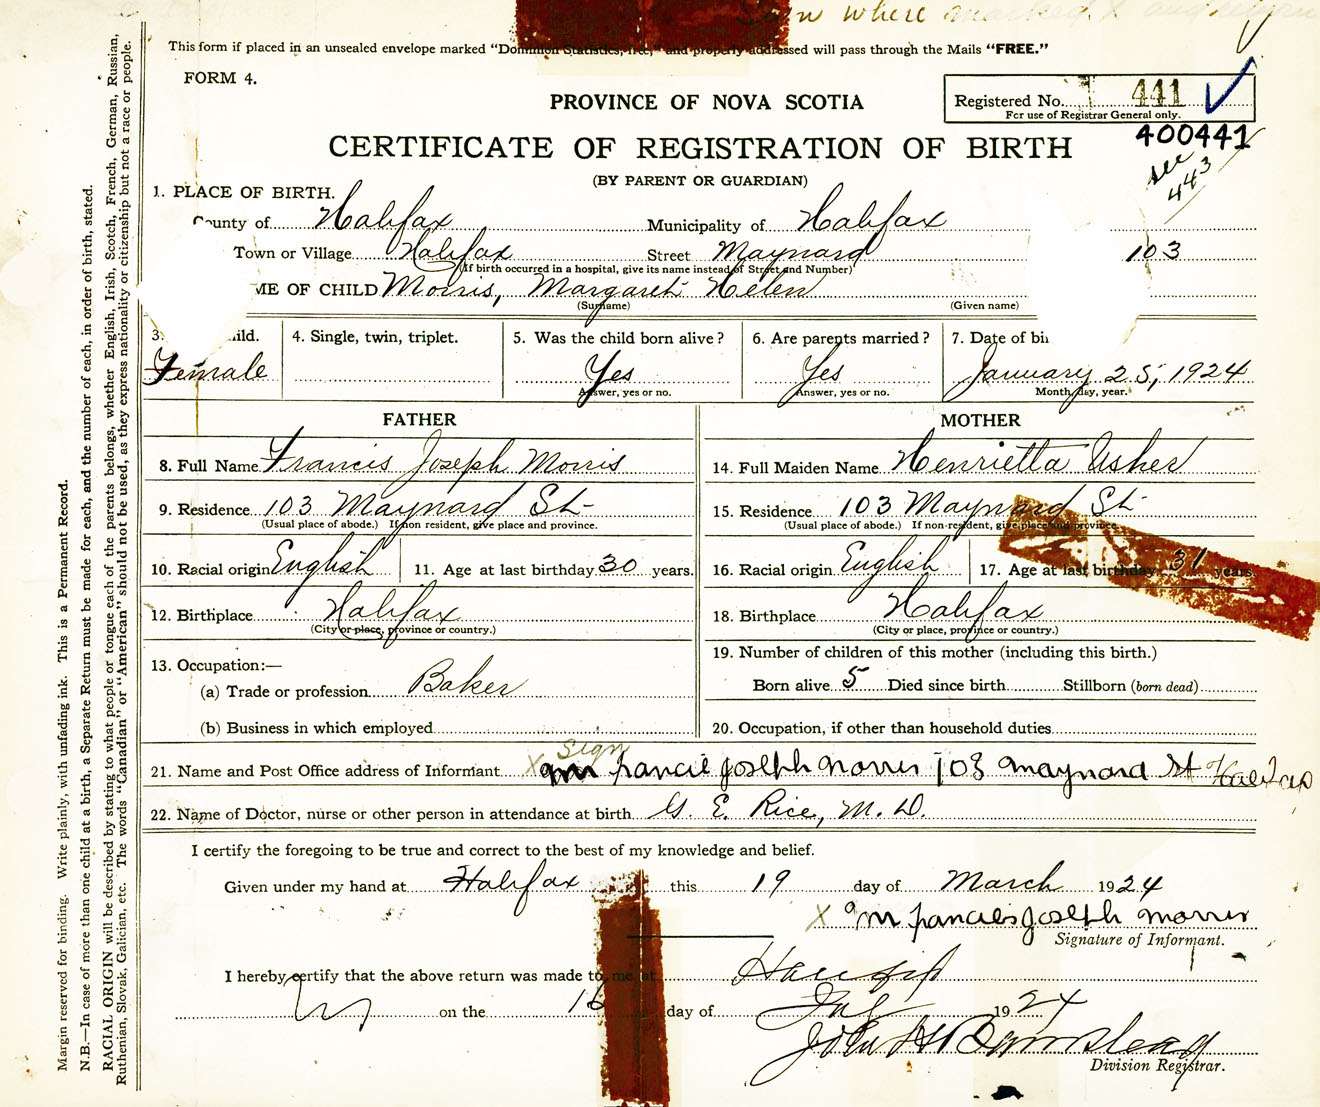 Sign where marked X and return
This form if placed in an unsealed envelope marked "Dominion Statistics, free," and properly addressed will pass through the Mails "FREE."
FORM 4.
PROVINCE OF NOVA SCOTIA
Registered No. 441
For use of Registrar General only.
400441
see 443
CERTIFICATE OF REGISTRATION OF BIRTH
(BY PARENT OR GUARDIAN)
1. PLACE OF BIRTH.
County of Halifax Municipality of Halifax
Town or Village Halifax Street Maynard 103
(If birth occurred in a hospital, give its name instead of Street and Number)
ME OF CHILD Morris, Margaret Helen
(Surname) (Given name)
3. ild. 4. Single, twin, triplet. 5. Was the child born alive? 6. Are parents married? 7. Date of bi
Female Yes Yes January 25, 1924
Answer, yes or no. Answer, yes or no. Month, day, year.
FATHER MOTHER
8. Full Name Francis Joseph Morris 14. Full Maiden Name Henrietta Usher
9. Residence 103 Maynard St- 15. Residence 103 Maynard St-
(Usual place of abode.) If non resident, give place and province. (Usual place of abode.) If non-resident, give place and province.
10. Racial origin English 11. Age at last birthday 30 years. 16. Racial origin English 17. Age at last birthday 31 years
12. Birthplace Halifax 18. Birthplace Halifax
(City or place, province or country.) (City or place, province or country.)
13. Occupation:— 19. Number of children of this mother (including this birth.)
(a) Trade or profession Baker Born alive 5 Died since birth Stillborn (born dead)
(b) Business in which employed 20. Occupation, if other than household duties
Sign
21. Name and Post Office address of Informant X Francie Joseph Morris 103 Maynard St Halifax
22. Name of Doctor, nurse or other person in attendance at birth G. E. Rice, M. D.
I certify the foregoing to be true and correct to the best of my knowledge and belief.
Given under my hand at Halifax this 19 day of March 1924
X Francies Joseph Morris
Signature of Informant.
I hereby certify that the above return was made to me at Halifax
on the 16 day of July 1924
Division Registrar.
Margin reserved for binding. Write plainly, with unfading ink. This is a Permanent Record.
N.B.—In case of more than one child at a birth, a Separate Return must be made for each, and the number of each, in order of birth, stated.
RACIAL ORIGIN will be described by stating to what people or tongue each of the parents belongs, whether English, Irish, Scotch, French, German, Russian,
Ruthenian, Slovak, Galician, etc. The words "Canadian" or "American" should not be used, as they express nationality or citizenship but not a race or people.